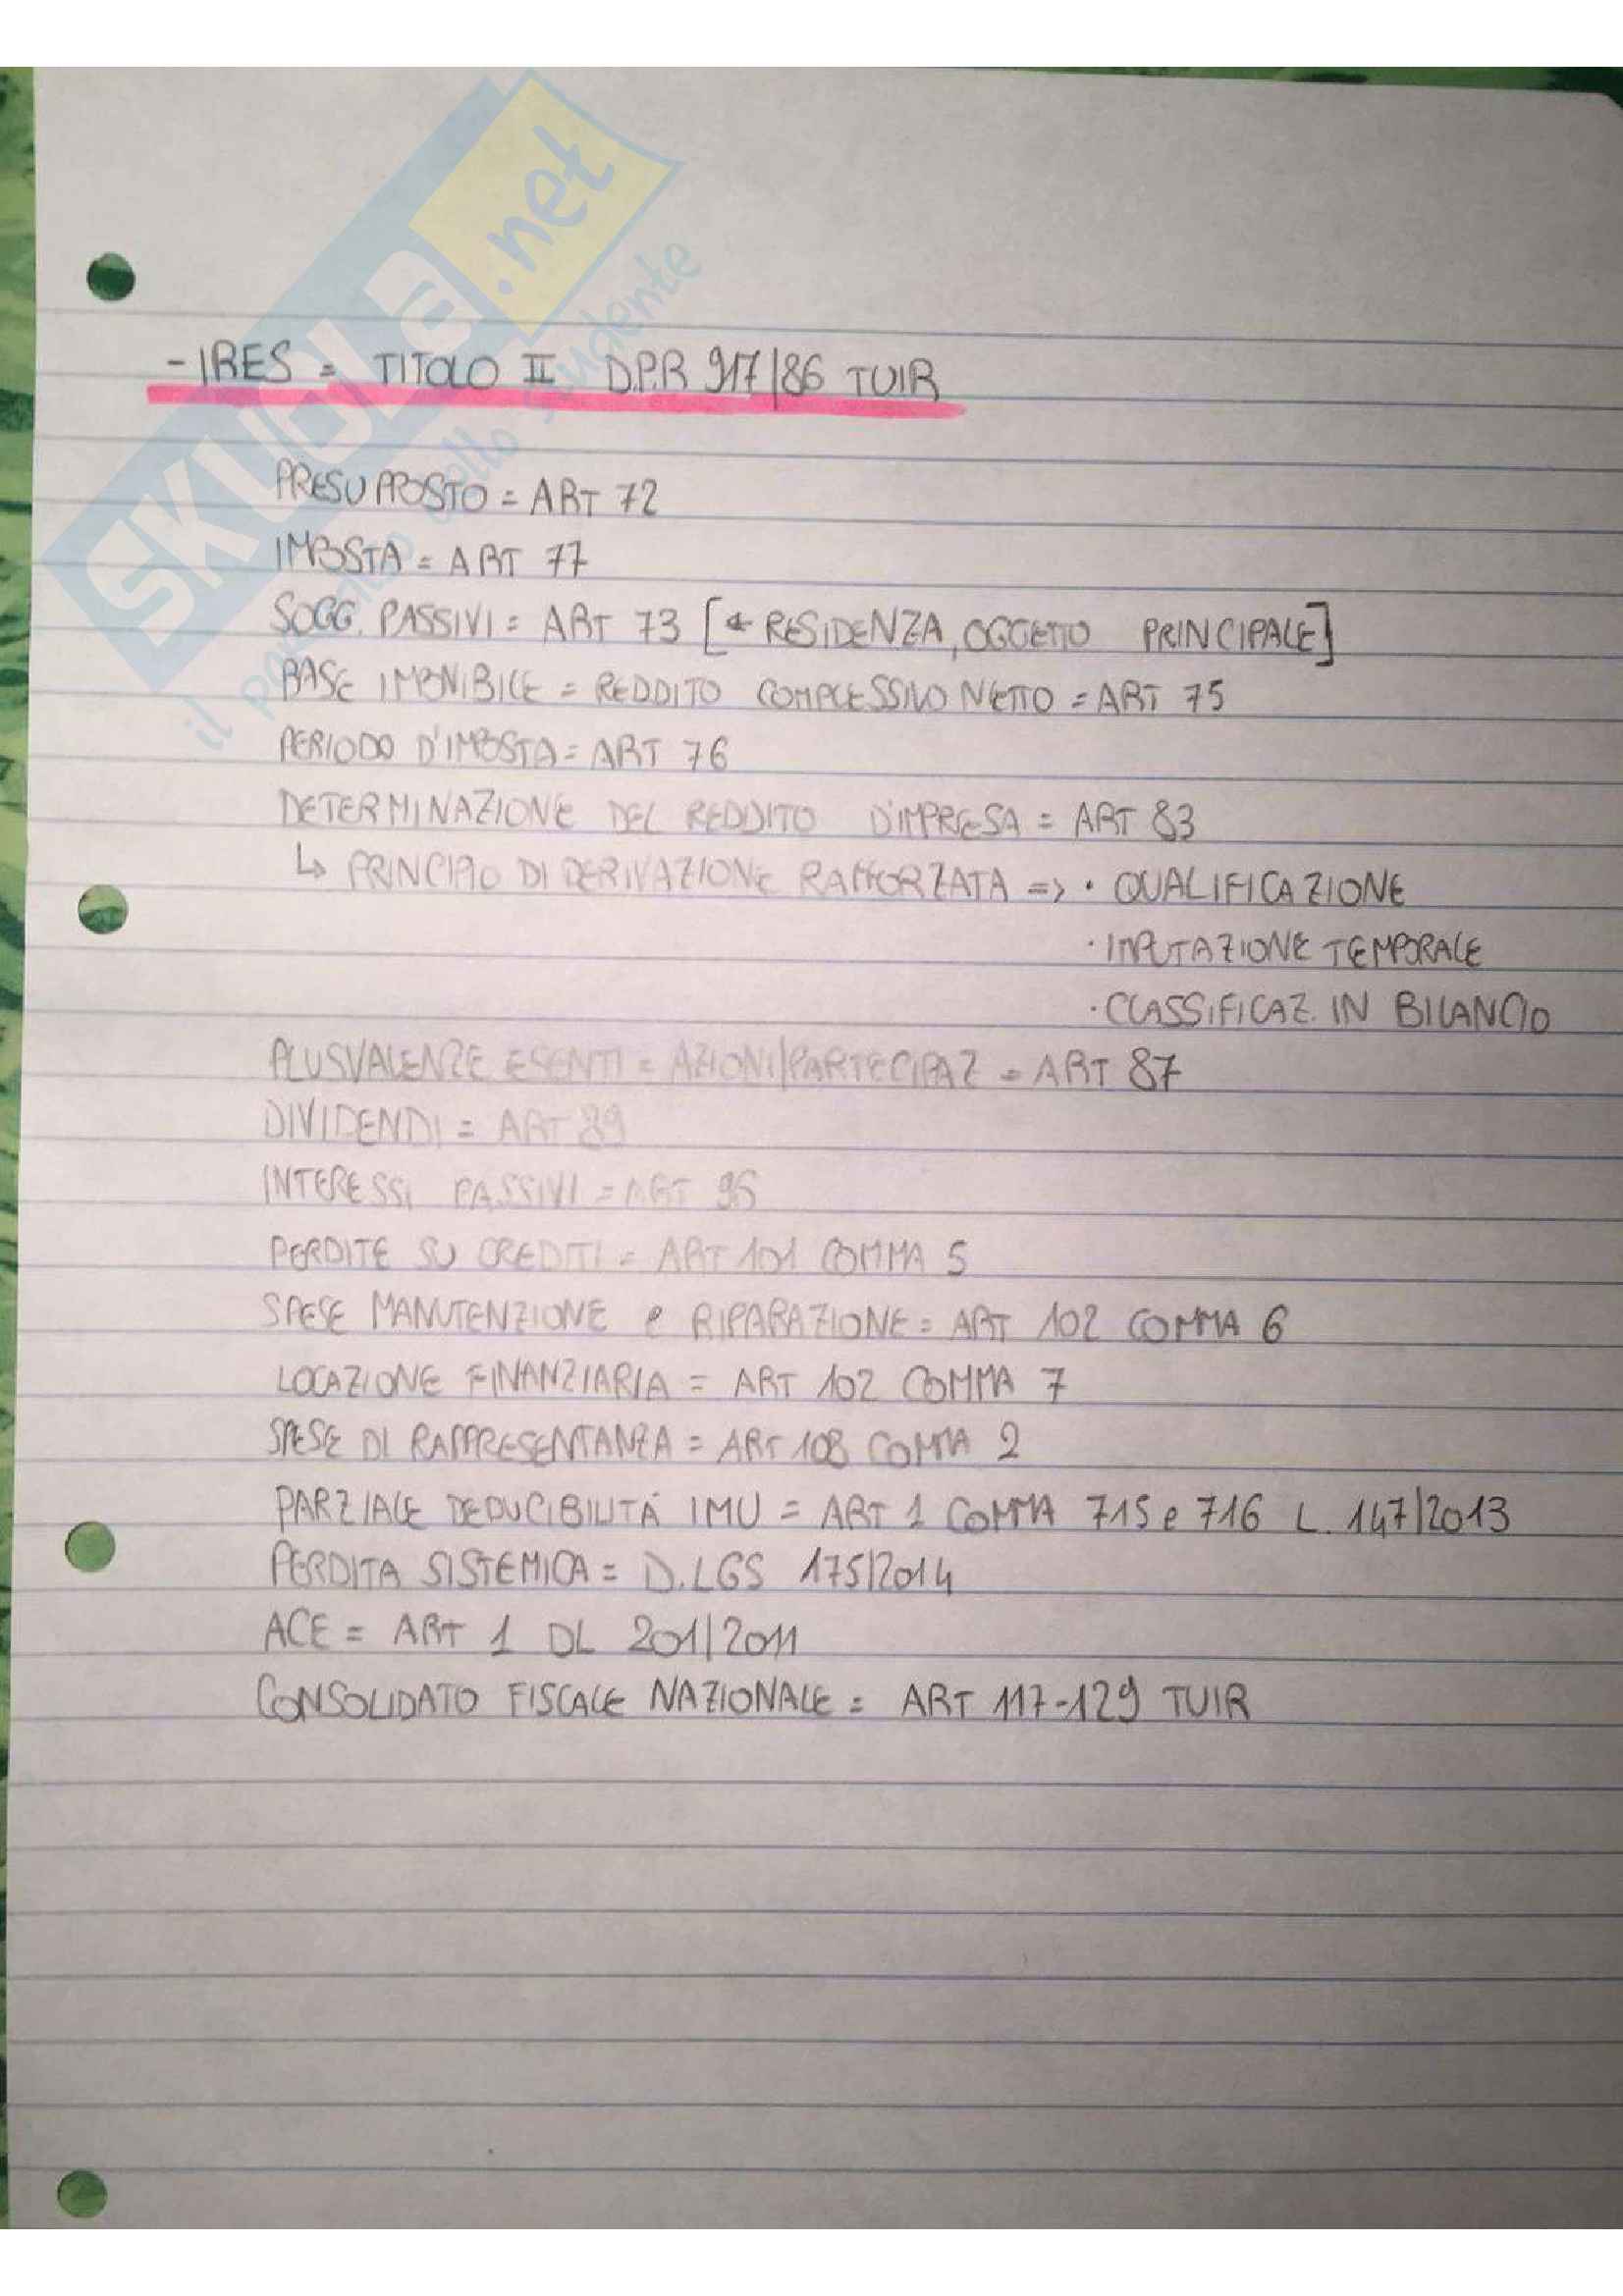 SKUOLA.net
il paradiso dello studente
- IRES = TITOLO II D.P.R 917/86 TUIR
PRESUPPOSTO = ART 72
IMPOSTA = ART 77
SOGG. PASSIVI = ART 73 [← RESIDENZA, OGGETTO PRINCIPALE]
BASE IMPONIBILE = REDDITO COMPLESSIVO NETTO = ART 75
PERIODO D'IMPOSTA = ART 76
DETERMINAZIONE DEL REDDITO D'IMPRESA = ART 83
↳ PRINCIPIO DI DERIVAZIONE RAFFORZATA => • QUALIFICAZIONE
• IMPUTAZIONE TEMPORALE
• CLASSIFICAZ. IN BILANCIO
PLUSVALENZE ESENTI = AZIONI/PARTECIPAZ = ART 87
DIVIDENDI = ART 89
INTERESSI PASSIVI = ART 96
PERDITE SU CREDITI = ART 101 COMMA 5
SPESE MANUTENZIONE e RIPARAZIONE = ART 102 COMMA 6
LOCAZIONE FINANZIARIA = ART 102 COMMA 7
SPESE DI RAPPRESENTANZA = ART 108 COMMA 2
PARZIALE DEDUCIBILITÁ IMU = ART 1 COMMA 715 e 716 L. 147/2013
PERDITA SISTEMICA = D.LGS 175/2014
ACE = ART 1 DL 201/2011
CONSOLIDATO FISCALE NAZIONALE = ART 117-129 TUIR